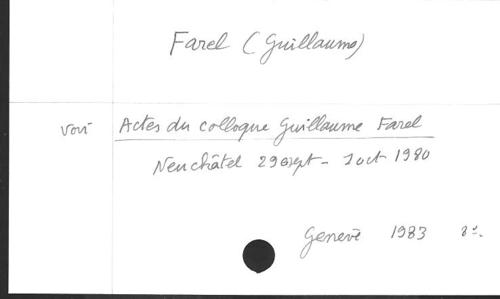 Farel (Guillaume)
voir Actes du colloque Guillaume Farel
Neuchâtel 29 sept - 1 oct 1980
Genève 1983 8°.